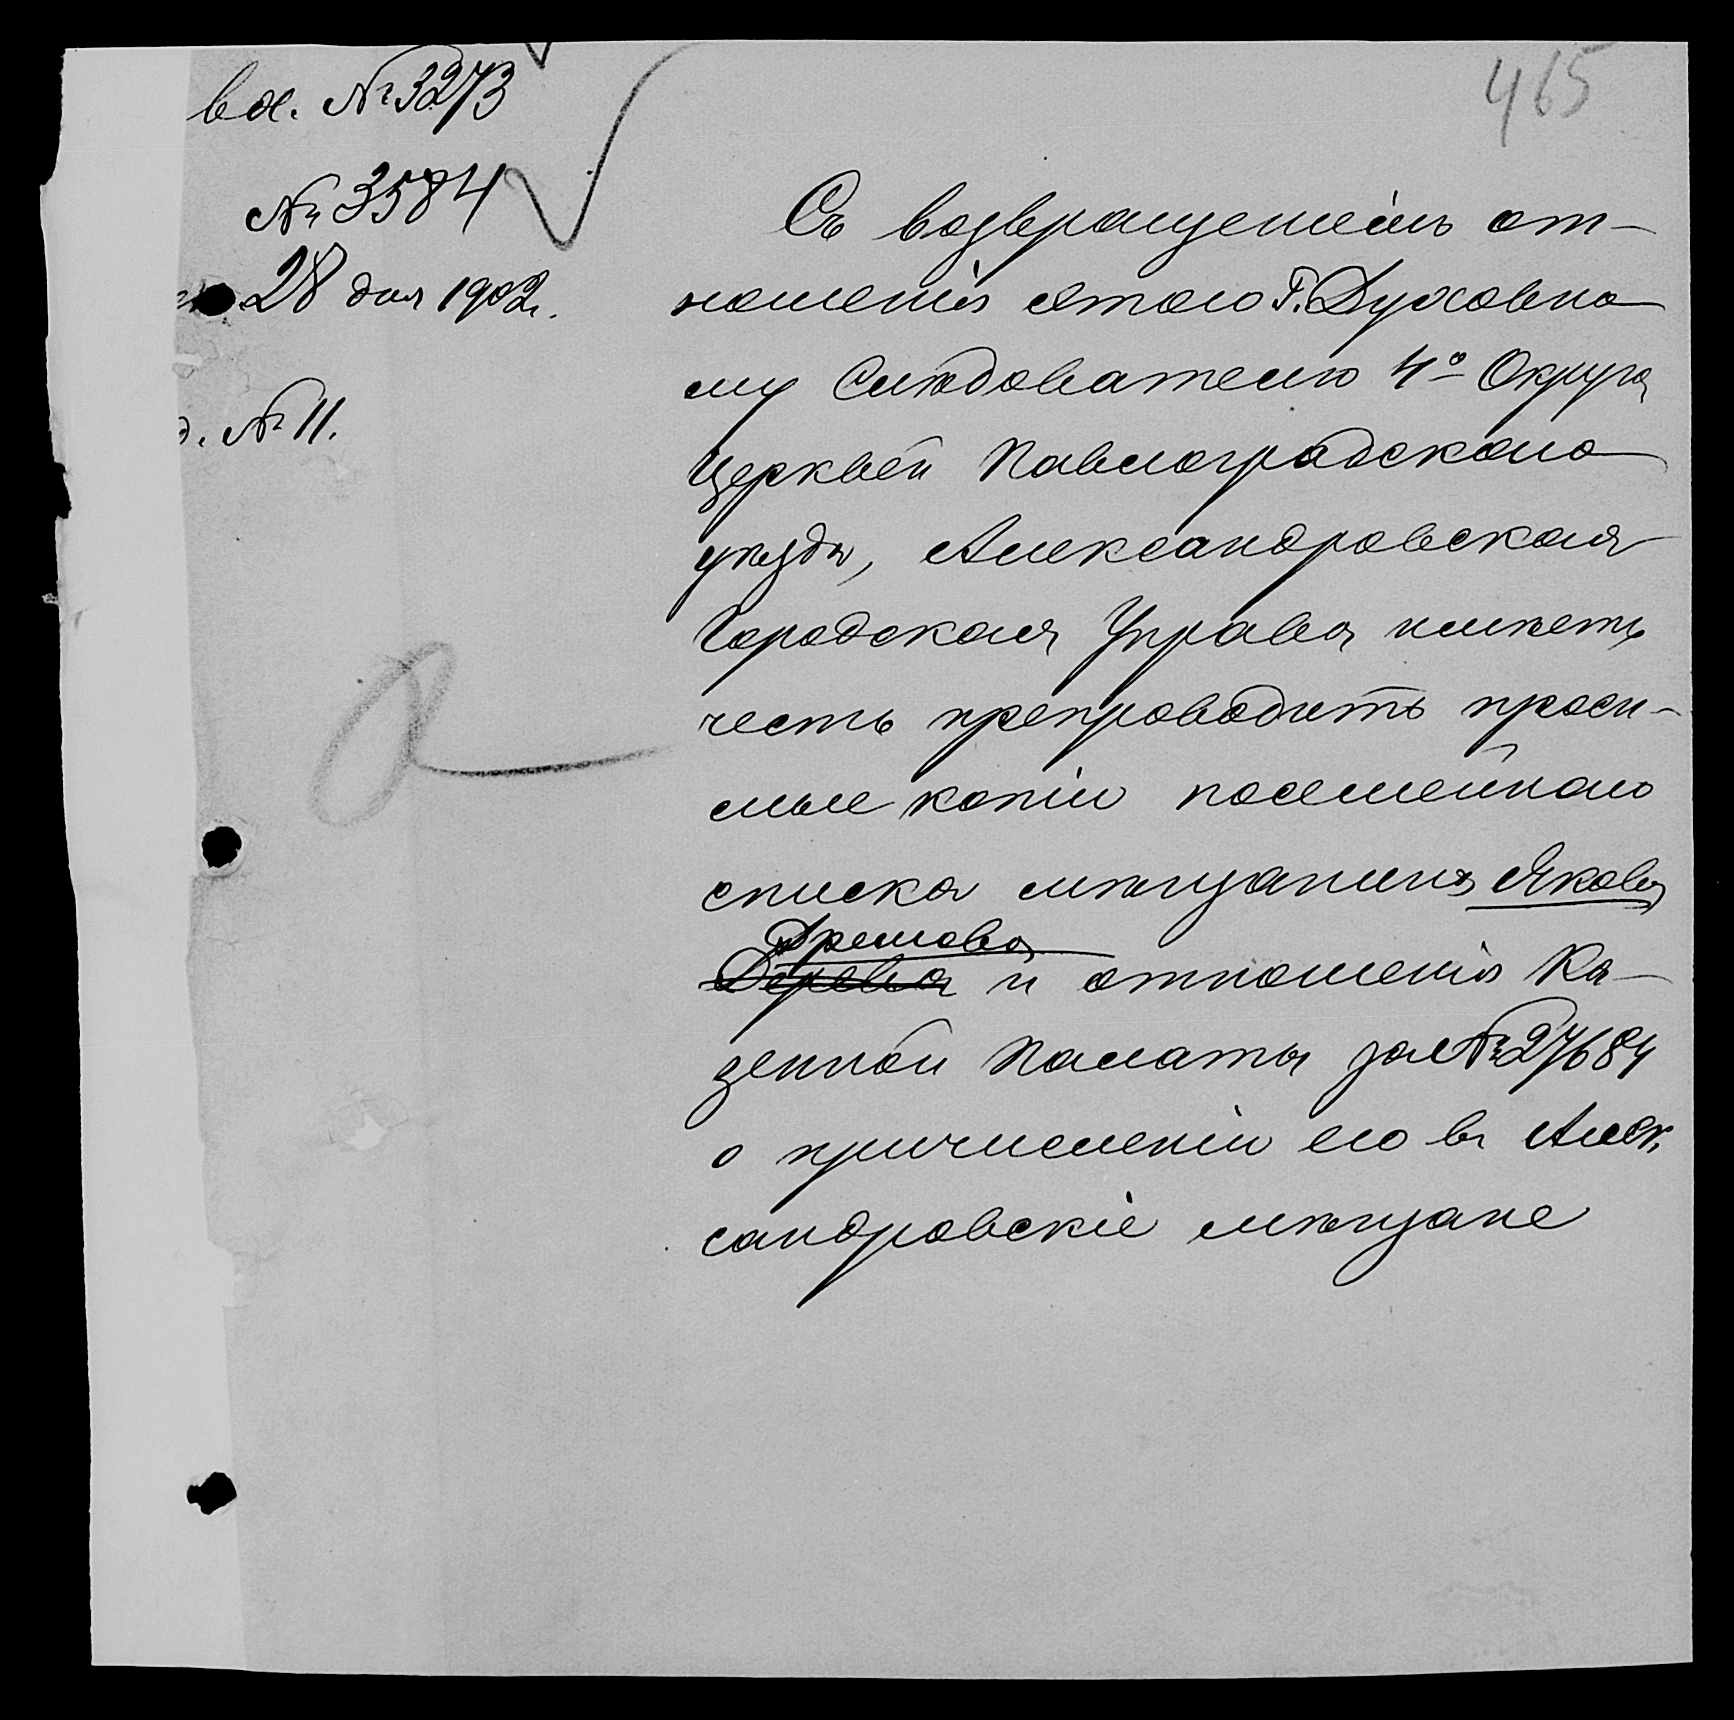 465
вх. № 3273
№ 3584
28 дня 1902 г.
д. № 11.
Съ возвращеніемъ от-
ношенія этого Г. Духовно
му Слѣдователю 4º Округа
Церквей Павлоградскаго
уѣзда, Александровская
Городская Управа имѣетъ
честь препроводить проси-
мые копіи посемейнаго
списка мѣщанина Якова
Дремова
и отношенія Ка-
зенной Палаты за № 27684
о причисленіи его въ Алек
сандровскіе мѣщане